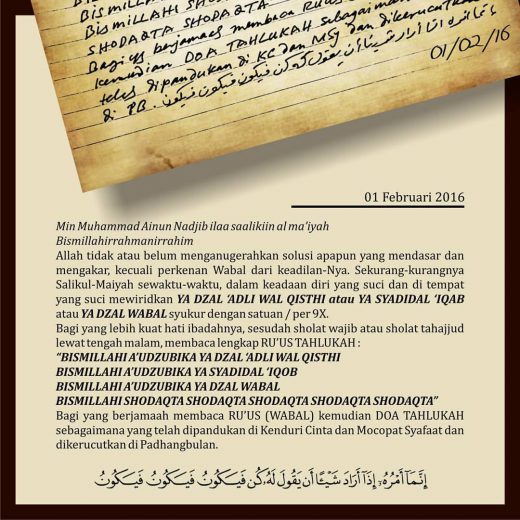 BISMILLAHI
BISMILLAHI SHODAQTA
SHODAQTA SHODAQTA
Bagi yg berjamaes membaca RU'US
kemudian DOA TAHLUKAH sebagaimana
telas dipandukan di KC dan MSy dan dikerucutkan
di PB.
01/02/16
01 Februari 2016
Min Muhammad Ainun Nadjib ilaa saalikiin al ma'iyah
Bismillahirrahmanirrahim
Allah tidak atau belum menganugerahkan solusi apapun yang mendasar dan
mengakar, kecuali perkenan Wabal dari keadilan-Nya. Sekurang-kurangnya
Salikul-Maiyah sewaktu-waktu, dalam keadaan diri yang suci dan di tempat
yang suci mewiridkan YA DZAL 'ADLI WAL QISTHI atau YA SYADIDAL 'IQAB
atau YA DZAL WABAL syukur dengan satuan / per 9X.
Bagi yang lebih kuat hati ibadahnya, sesudah sholat wajib atau sholat tahajjud
lewat tengah malam, membaca lengkap RU'US TAHLUKAH :
"BISMILLAHI A'UDZUBIKA YA DZAL 'ADLI WAL QISTHI
BISMILLAHI A'UDZUBIKA YA SYADIDAL 'IQOB
BISMILLAHI A'UDZUBIKA YA DZAL WABAL
BISMILLAHI SHODAQTA SHODAQTA SHODAQTA SHODAQTA SHODAQTA"
Bagi yang berjamaah membaca RU'US (WABAL) kemudian DOA TAHLUKAH
sebagaimana yang telah dipandukan di Kenduri Cinta dan Mocopat Syafaat dan
dikerucutkan di Padhangbulan.
إِنَّمَآ أَمْرُهُۥٓ إِذَآ أَرَادَ شَيْـًٔا أَن يَقُولَ لَهُۥ كُن فَيَكُونُ فَيَكُونُ فَيَكُونُ